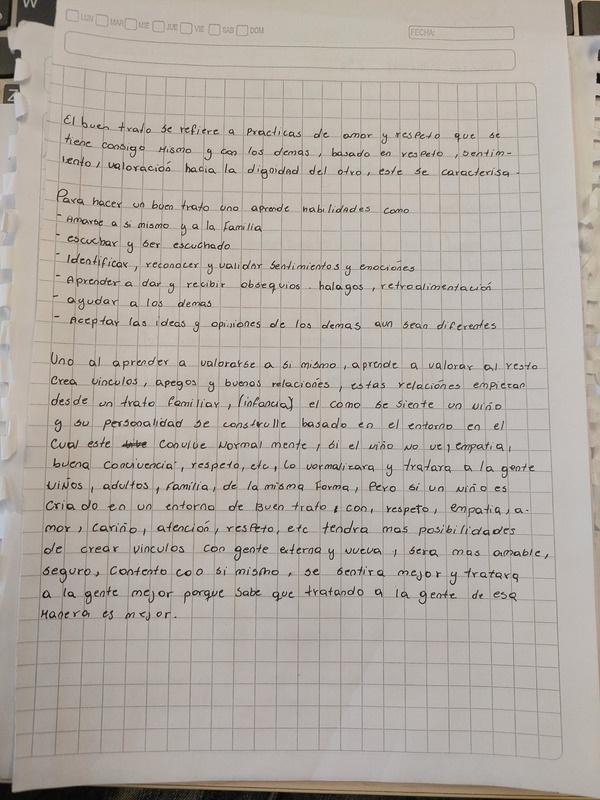 LUN MAR MIE JUE VIE SAB DOM
FECHA:
El buen trato se refiere a practicas de amor y respeto que se
tiene consigo mismo y con los demas, basado en respeto, sentim-
iento, valoración hacia la dignidad del otro, este se caracterisa.
Para hacer un buen trato uno aprende habilidades como
- Amarse a si mismo y a la familia
- escuchar y ser escuchado
- Identificar, reconocer y validar sentimientos y emociones
- Aprender a dar y recibir obsequios. halagos, retroalimentación
- ayudar a los demas
- Aceptar las ideas y opiniones de los demas aun sean diferentes
Uno al aprender a valorarse a si mismo, aprende a valorar al resto
Crea vinculos, apegos y buenas relaciones, estas relaciones empiezan
desde un trato familiar, (infancia) el como se siente un niño
y su personalidad se construlle basado en el entorno en el
cual este convive normal mente, si el niño no ve, empatia,
buena convivencia, respeto, etc, lo normalizara y tratara a la gente
niños, adultos, familia, de la misma forma, pero si un niño es
criado en un entorno de buen trato, con, respeto, empatia, a-
mor, cariño, atención, respeto, etc tendra mas posibilidades
de crear vinculos con gente externa y nueva, sera mas amable,
seguro, contento con si mismo, se sentira mejor y tratara
a la gente mejor porque sabe que tratando a la gente de esa
manera es mejor.